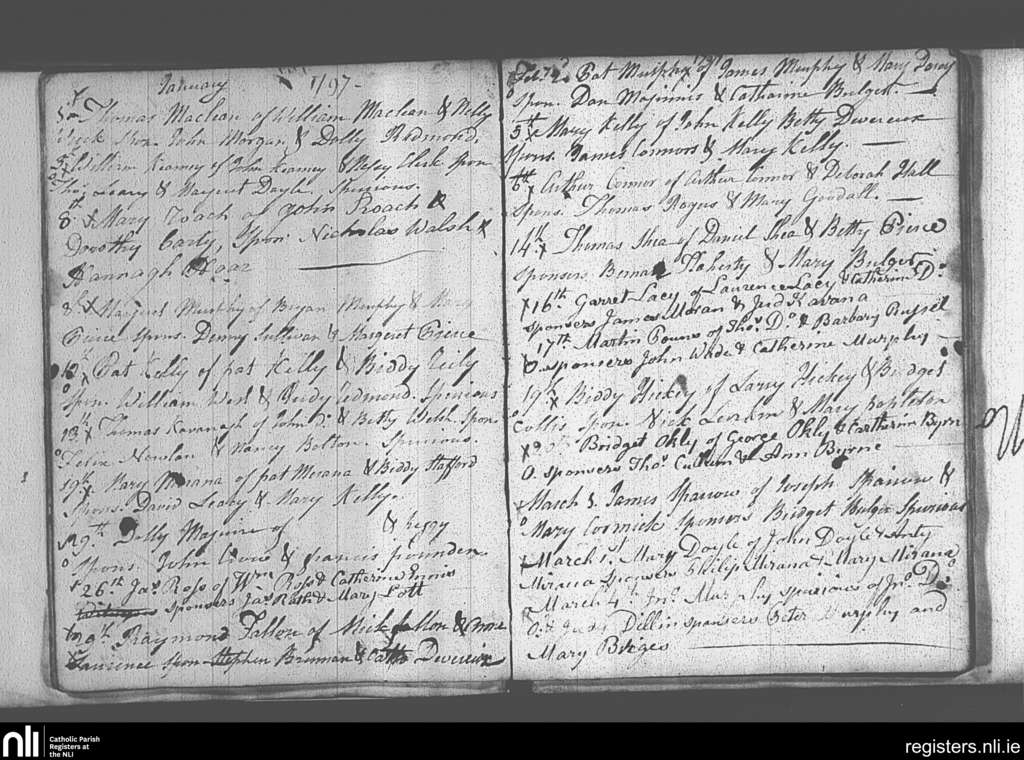 January 1797-
5th Thomas Maclean of William Maclean & Nelly
Spon. John Morgan & Dolly Redmond.
William Kearney of John Kearney & Spon
Thos Leary & Margret Doyle Spurious.
8th x Mary Roach of John Roach &
Dorothy Carty, Spon. Nicholas Walsh &
Hannagh
8th x Margret Murphy of Bryan Murphy & Mary
Pierce Spons. Denny Sullivan & Margaret Pierce
x Pat Kelly of pat Kelly & Biddy
Spon. William West & Spurious
13th x Thomas Kavanagh of John Do. & Betty Welsh Spon.
Felix Nowlan & Nancy Bolton. Spurious.
19th x Mary Morana of pat Morana & Biddy Stafford
Spons. David Leacy & Mary Kelly.
Dolly Maguire of & peggy
Spons. John & francis pounden
26th Jas Ross of Wm Ross & Catherine Ennis
sponsers Jas Rath & Mary Lott
Raymond Fallon of Mick fallon &
Lawrence Spon Stephen Brennan & Cath Devereix
Feb. 2d Pat Murphy of James Murphy & Mary
Spon. Dan Maginnis & Catharine Bulger
5th x Mary Kelly of John Kelly Betty Devereux
Spons. James Connors & Mary Kelly.
6th x Arthur Connor of Arthur Connor & Deborah Hall
Spons. Thomas Rogus & Mary Goodall.
14th x Thomas Shea of Daniel Shea & Betty Pierce
Sponsers Flaherty & Mary Bulger
x 16th Garret Lacy of Laurence Lacy & Catherin Do.
sponsers James Moran & Jud Kavana
17th Martin Pouns of Thos Do. & Barbary Russel
sponsers John Wade & Catherine Murphy
19th x Biddy Hickey of Larry Hickey & Bridget
Collis Spon. Nick & Mary
Bridget Okly of George Okly & Cartherin Byrn
O. sponsers Thos Cullum & Ann Byrne
March James Sparrow of Joseph Sparrow &
Mary Cormick Sponsors Bridget Bulger Spurious
March 1. Mary Doyle of John Doyle & Anty
Mirana Sponsers Philip Mirana & Mary Mirana
March 4th Jno. Murphy spurious of Jno. Do.
& Judy Dillin sponsers Peter Murphy and
Mary Birges
nli
Catholic Parish
Registers at
the NLI
registers.nli.ie